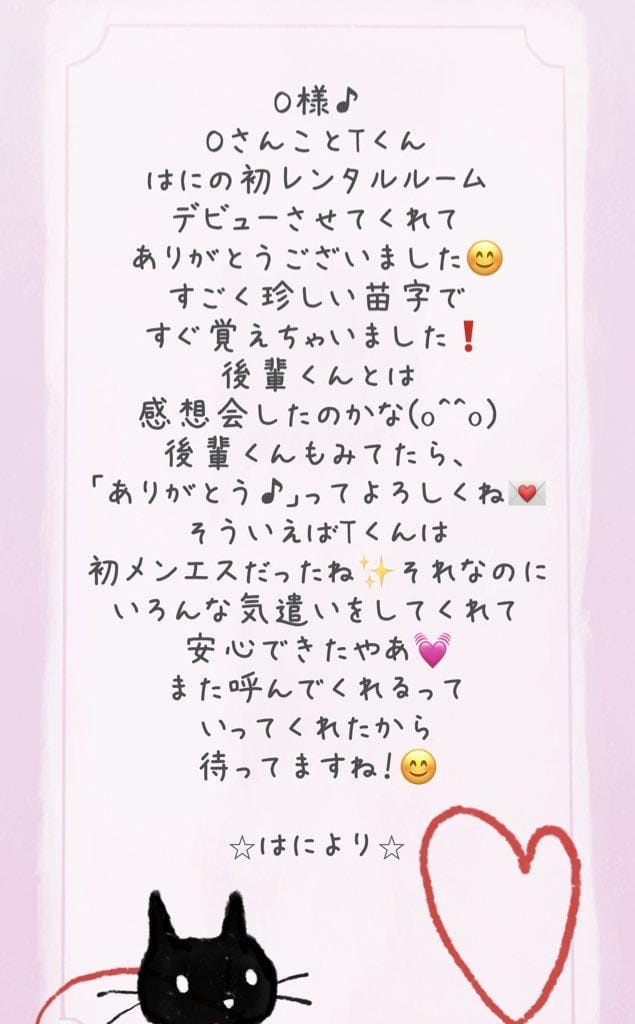 O様♪
OさんことTくん
はにの初レンタルルーム
デビューさせてくれて
ありがとうございました😊
すごく珍しい苗字で
すぐ覚えちゃいました❗
後輩くんとは
感想会したのかな(o^^o)
後輩くんもみてたら、
「ありがとう♪」ってよろしくね💌
そういえばTくんは
初メンエスだったね✨それなのに
いろんな気遣いをしてくれて
安心できたやあ💓
また呼んでくれるって
いってくれたから
待ってますね!😊
☆はにより☆